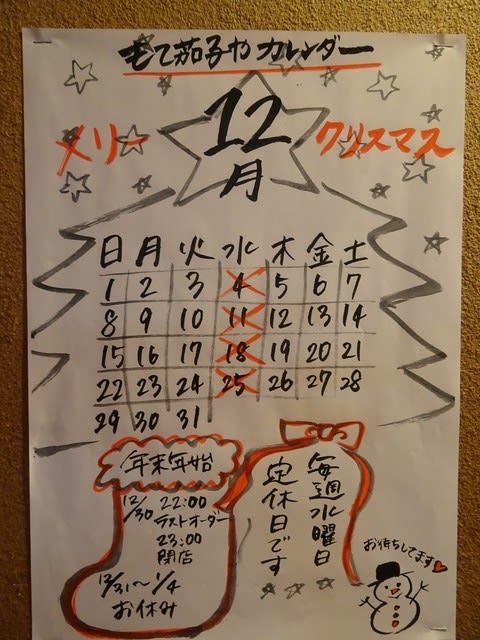 もて茄子やカレンダー
メリー 12月 クリスマス
日 月 火 水 木 金 土
1 2 3 4 5 6 7
8 9 10 11 12 13 14
15 16 17 18 19 20 21
22 23 24 25 26 27 28
29 30 31
年末年始
12/30 22:00
ラストオーダー
23:00
閉店
12/31〜1/4
お休み
毎週水曜日
定休日です
お待ちしてます